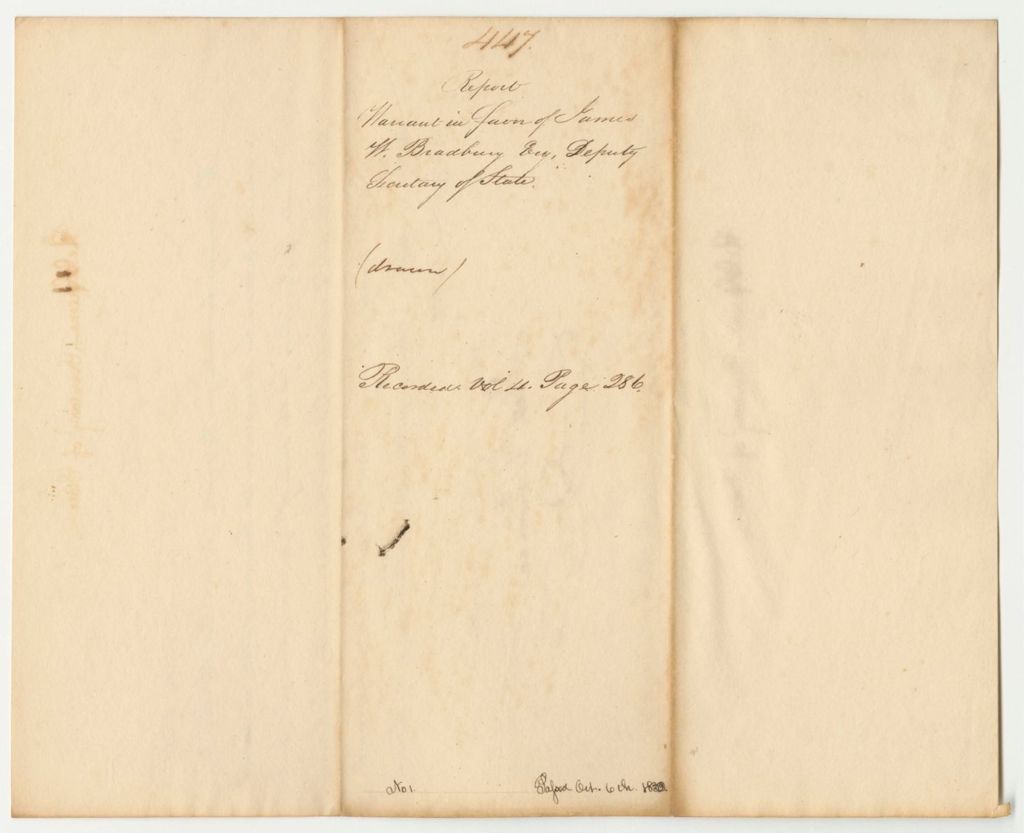 447.
Report
Warrant in favor of James
W. Bradbury Esq, Deputy
Secretary of State.
(drawn)
Recorded Vol 4. Page 286.
No 1.
Pafsed Oct. 6th.